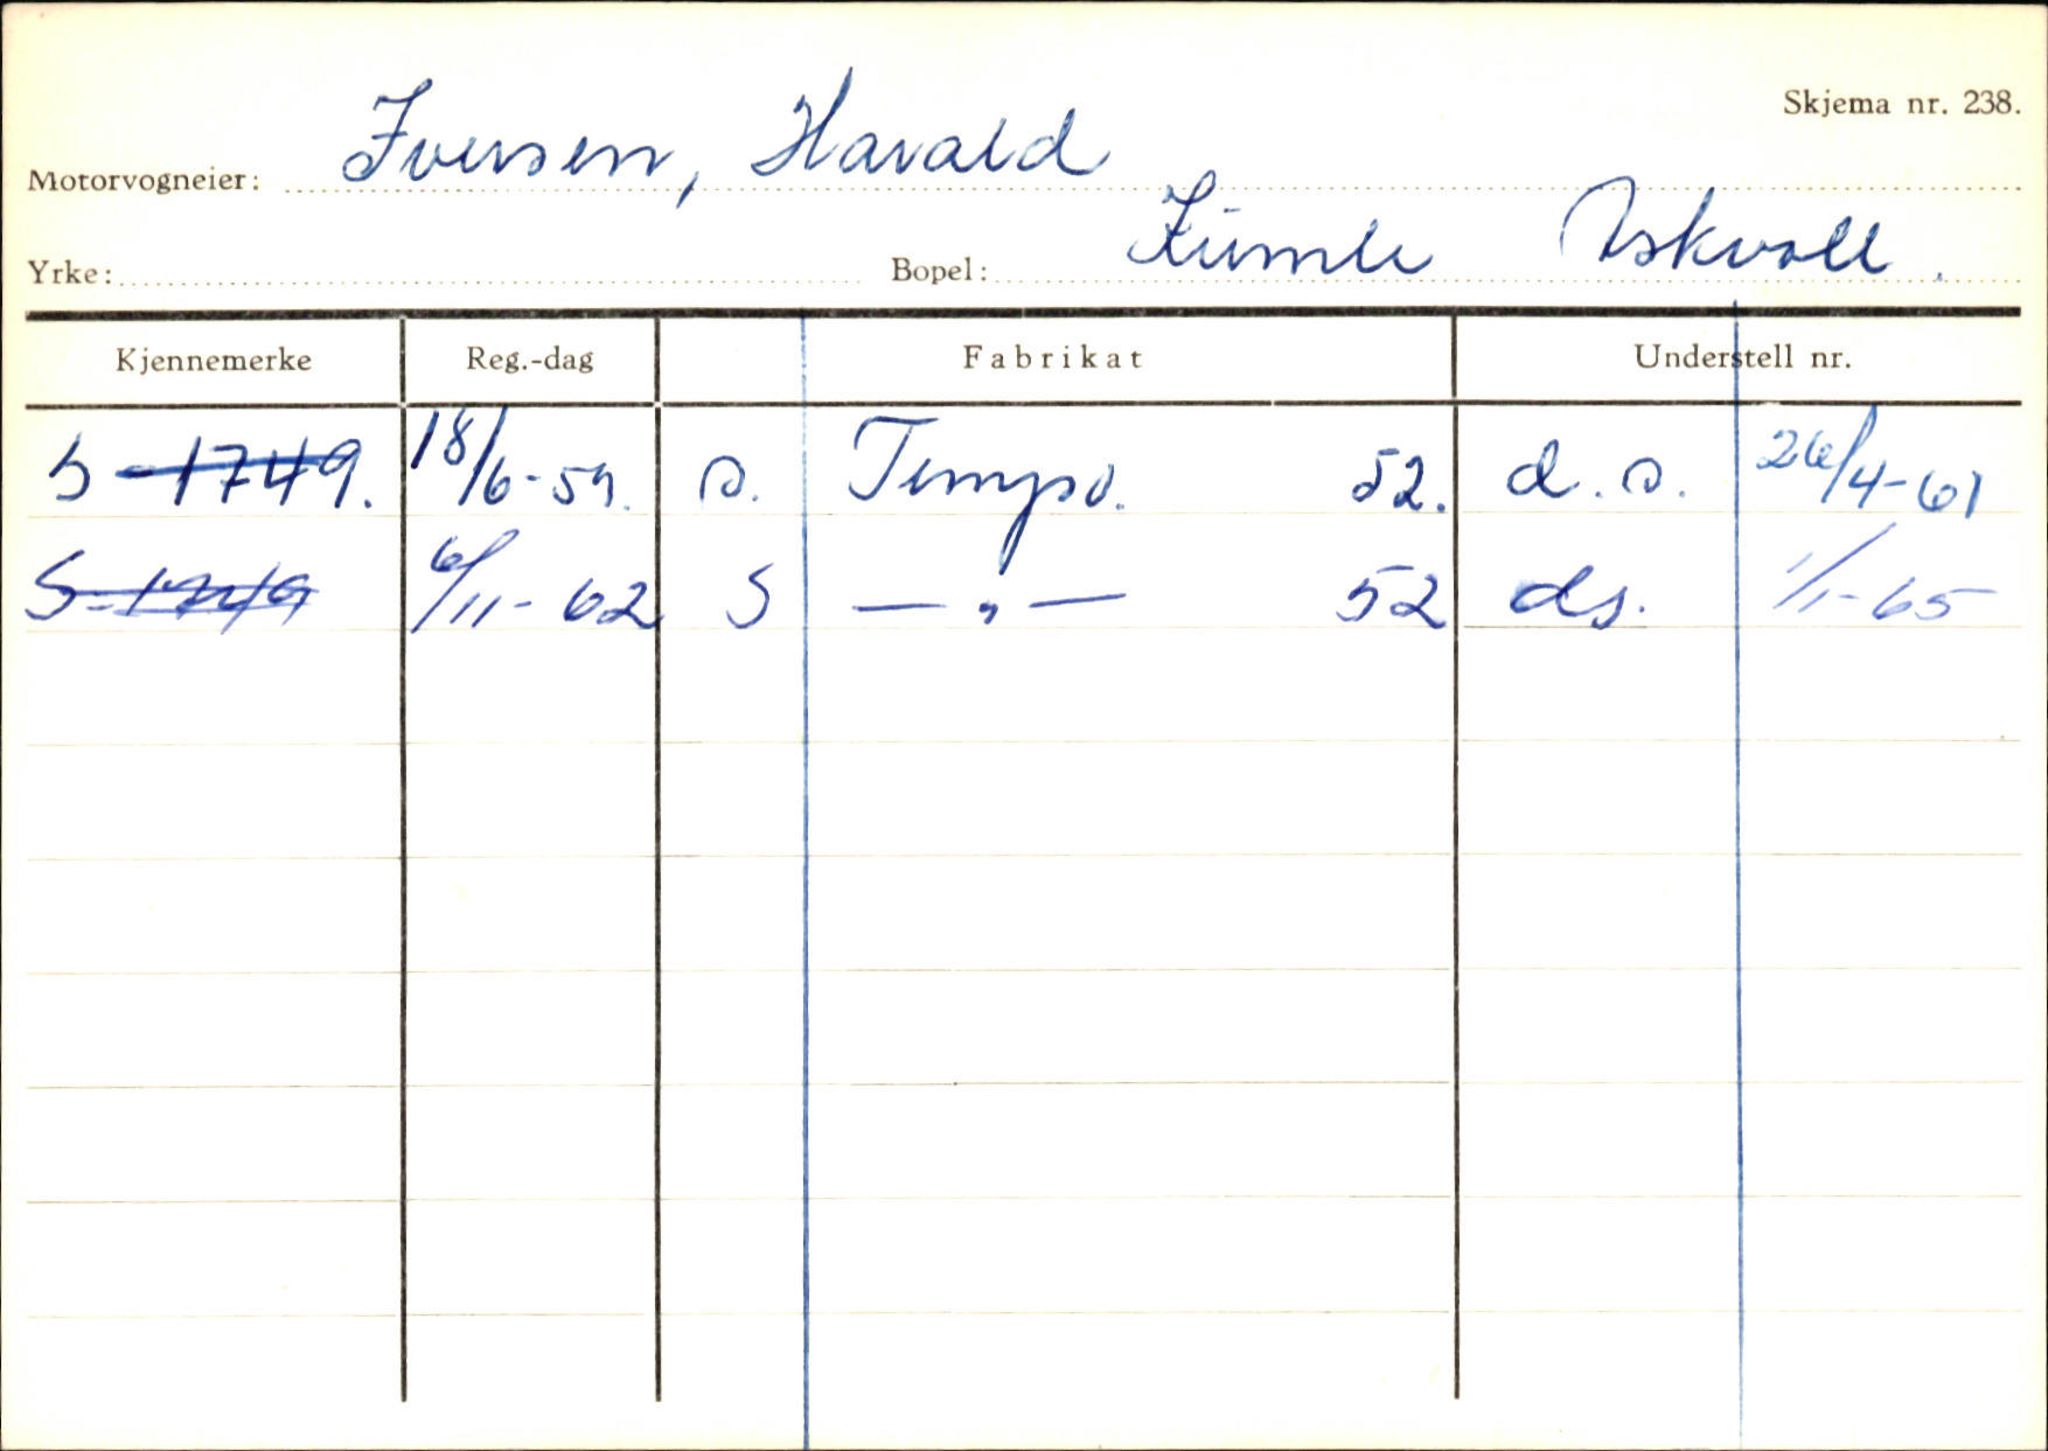 Skjema nr. 238.
Motorvogneier: Iversen, Harald
Yrke: Bopel: Kumle Askvoll.
Kjennemerke Reg.-dag Fabrikat Understell nr.
S-1749. 18/6-59. s. Tempo. 52. d.s. 26/4-61
S-1749 6/11-62 S —„— 52 ds. 1/1-65